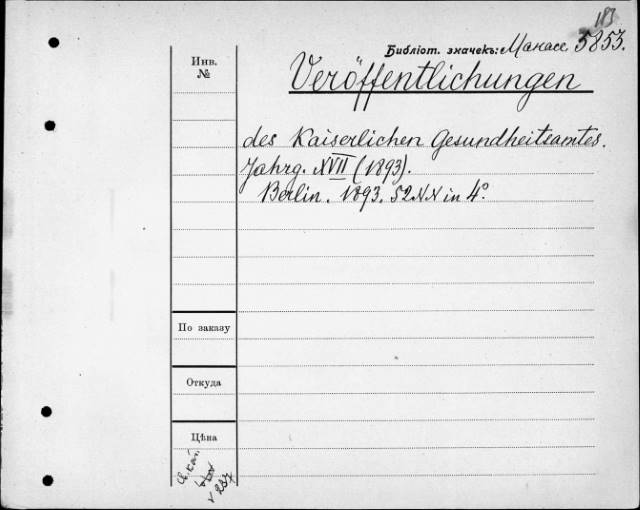 183
Библіот. значекъ: Манасе 5853.
Инв.
№
Veröffentlichungen
des Kaiserlichen Gesundheitsamtes.
Jahrg. XVII (1893).
Berlin. 1893. 52 NN in 4°.
По заказу
Откуда
Цѣна
v 237